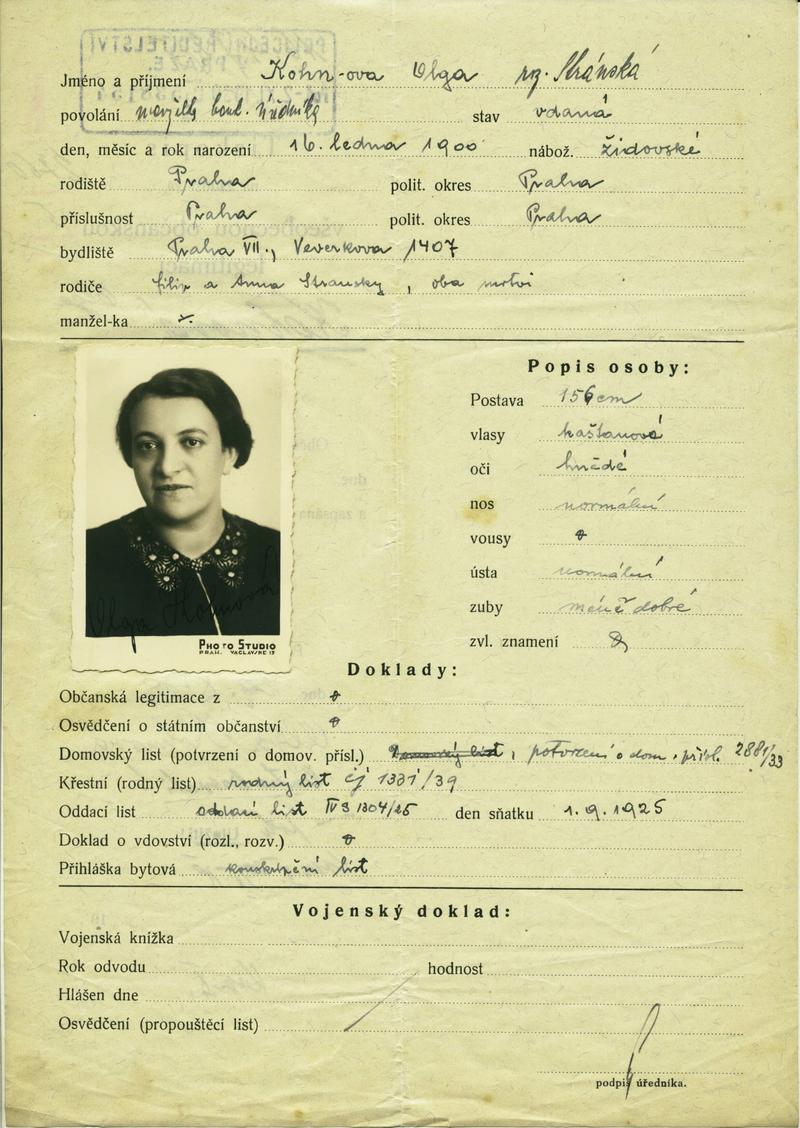 POLICEJNÍ ŘEDITELSTVÍ
V PRAZE
Jméno a příjmení Kohn-ova Olga rz. Stránská
povolání manž. bank. úředníka stav vdaná
den, měsíc a rok narození 16. ledna 1900 nábož. židovské
rodiště Praha polit. okres Praha
příslušnost Praha polit. okres Praha
bydliště Praha VII., Veverkova 1407
rodiče Filip a Anna Stránský, oba mrtvi
manžel-ka
Popis osoby:
Postava 156 cm
vlasy kaštanové
oči hnědé
nos normální
vousy
ústa normální
zuby méně dobré
zvl. znamení
Olga Kohnová
PHOTO STUDIO
PRAHA, VÁCLAVSKÉ 17
Doklady:
Občanská legitimace z
Osvědčení o státním občanství
Domovský list (potvrzení o domov. přísl.) Domovský list, potvrzení o dom. přísl. 2881/33
Křestní (rodný list) rodný list čj 1331/39
Oddací list oddací list IV3 1304/25 den sňatku 1. 9. 1925
Doklad o vdovství (rozl., rozv.)
Přihláška bytová konskripční list
Vojenský doklad:
Vojenská knížka
Rok odvodu hodnost
Hlášen dne
Osvědčení (propouštěcí list)
podpis úředníka.